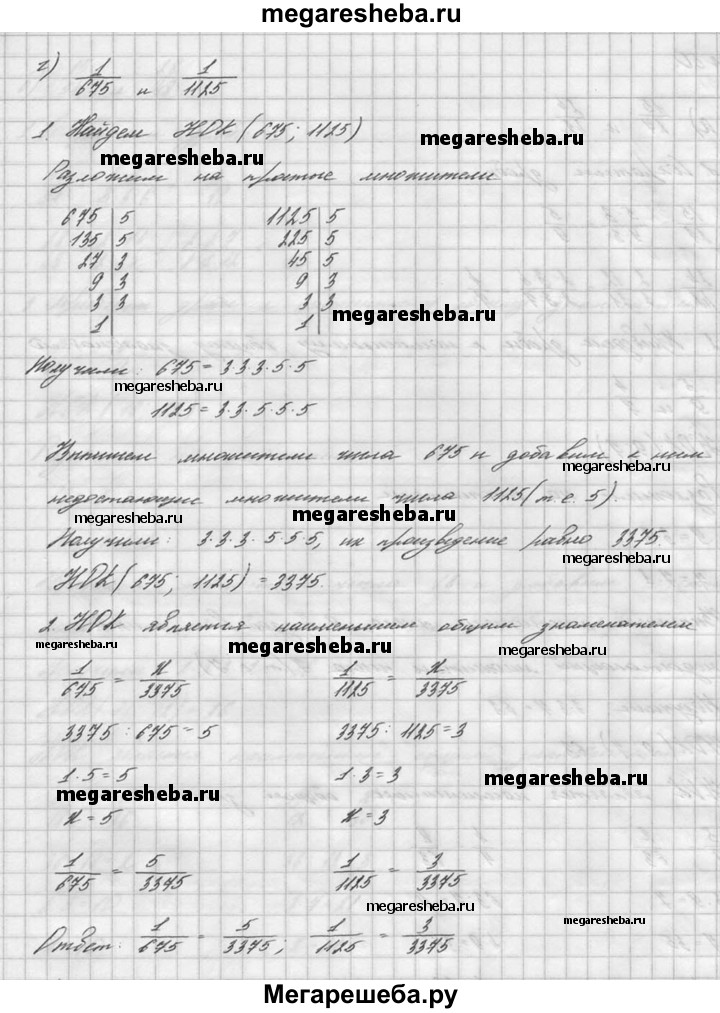 megaresheba.ru
г) 1/675 и 1/1125
1. Найдем НОК (675; 1125)
megaresheba.ru
megaresheba.ru
Разложим на простые множители
675 | 5 1125 | 5
135 | 5 225 | 5
27 | 3 45 | 5
9 | 3 9 | 3
3 | 3 3 | 3
1 | 1 |
megaresheba.ru
Получили: 675 = 3·3·3·5·5
megaresheba.ru
1125 = 3·3·5·5·5
Выпишем множители числа 675 и добавим к ним
megaresheba.ru
недостающие множители числа 1125 (т.е. 5).
megaresheba.ru megaresheba.ru
Получили: 3·3·3·5·5·5, их произведение равно 3375
megaresheba.ru
НОК (675; 1125) = 3375
2. НОК является наименьшим общим знаменателем
megaresheba.ru megaresheba.ru megaresheba.ru
1/675 = x/3375 1/1125 = x/3375
3375 : 675 = 5 3375 : 1125 = 3
megaresheba.ru
1·5 = 5 1·3 = 3
megaresheba.ru
megaresheba.ru
x = 5 x = 3
1/675 = 5/3375 1/1125 = 3/3375
megaresheba.ru
megaresheba.ru
Ответ: 1/675 = 5/3375; 1/1125 = 3/3375
Мегарешеба.ру